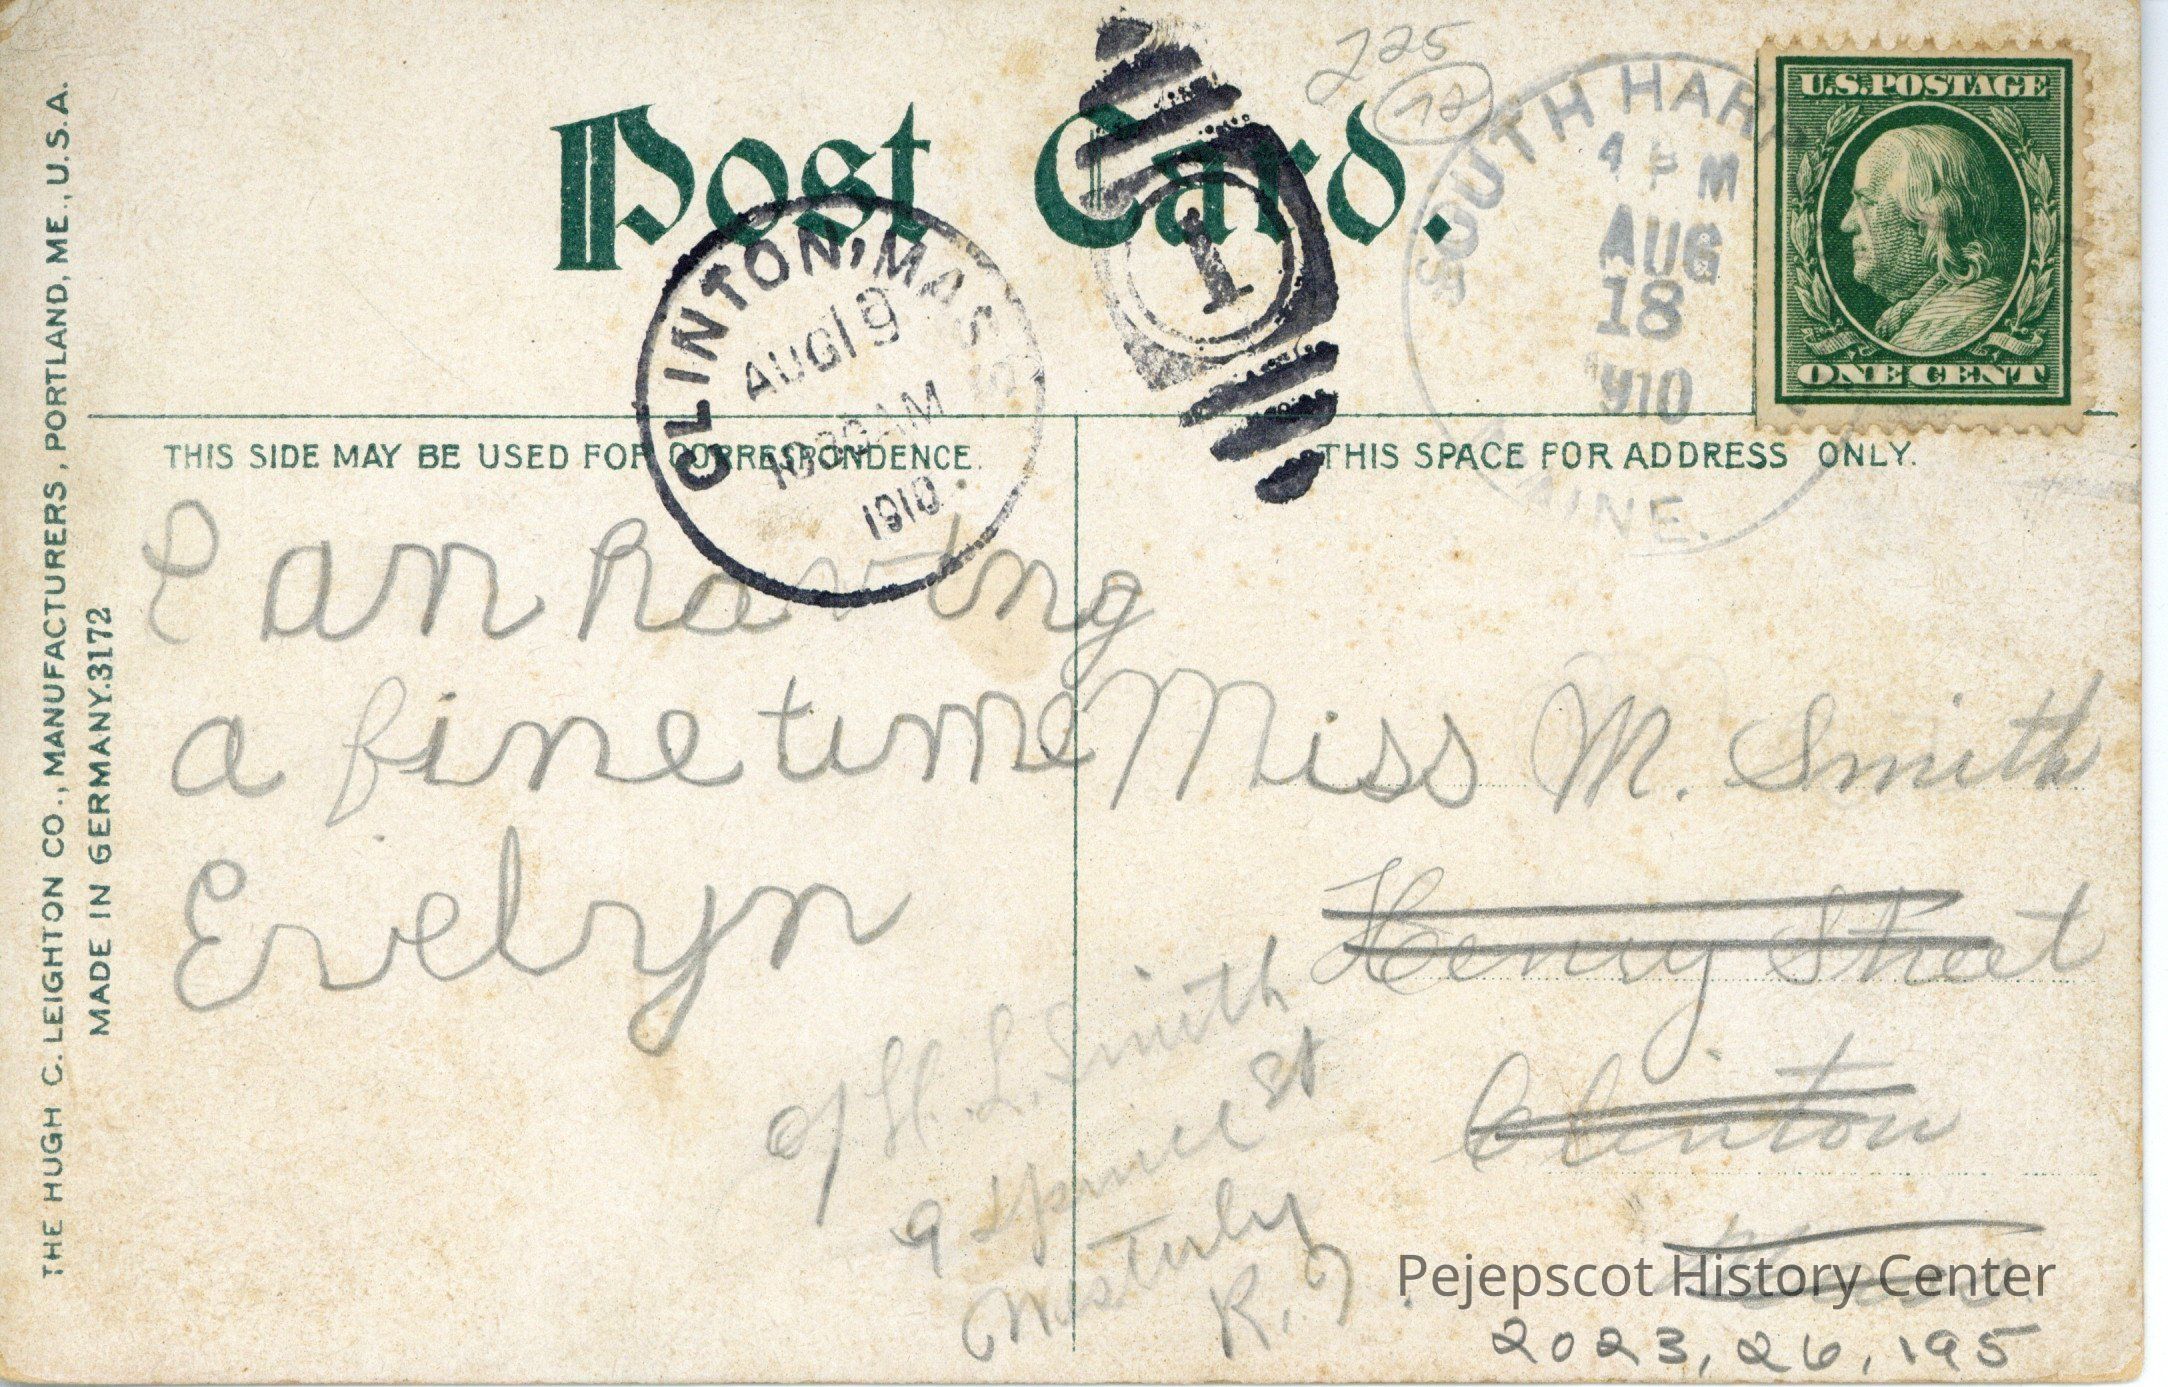 225
18
Post Card.
SOUTH HAR
4 PM
AUG
18
1910
MAINE.
U.S. POSTAGE
ONE CENT
CLINTON, MASS
AUG 19
1030 AM
1910
1
THIS SIDE MAY BE USED FOR CORRESPONDENCE.
THIS SPACE FOR ADDRESS ONLY.
I am having
a fine time
Evelyn
Miss M. Smith
Henry Street
Clinton
Mass.
c/o H. L. Smith
9 Spruce St
Westerly
R. I.
THE HUGH C. LEIGHTON CO., MANUFACTURERS, PORTLAND, ME., U.S.A.
MADE IN GERMANY. 3172
Pejepscot History Center
2023.26.195